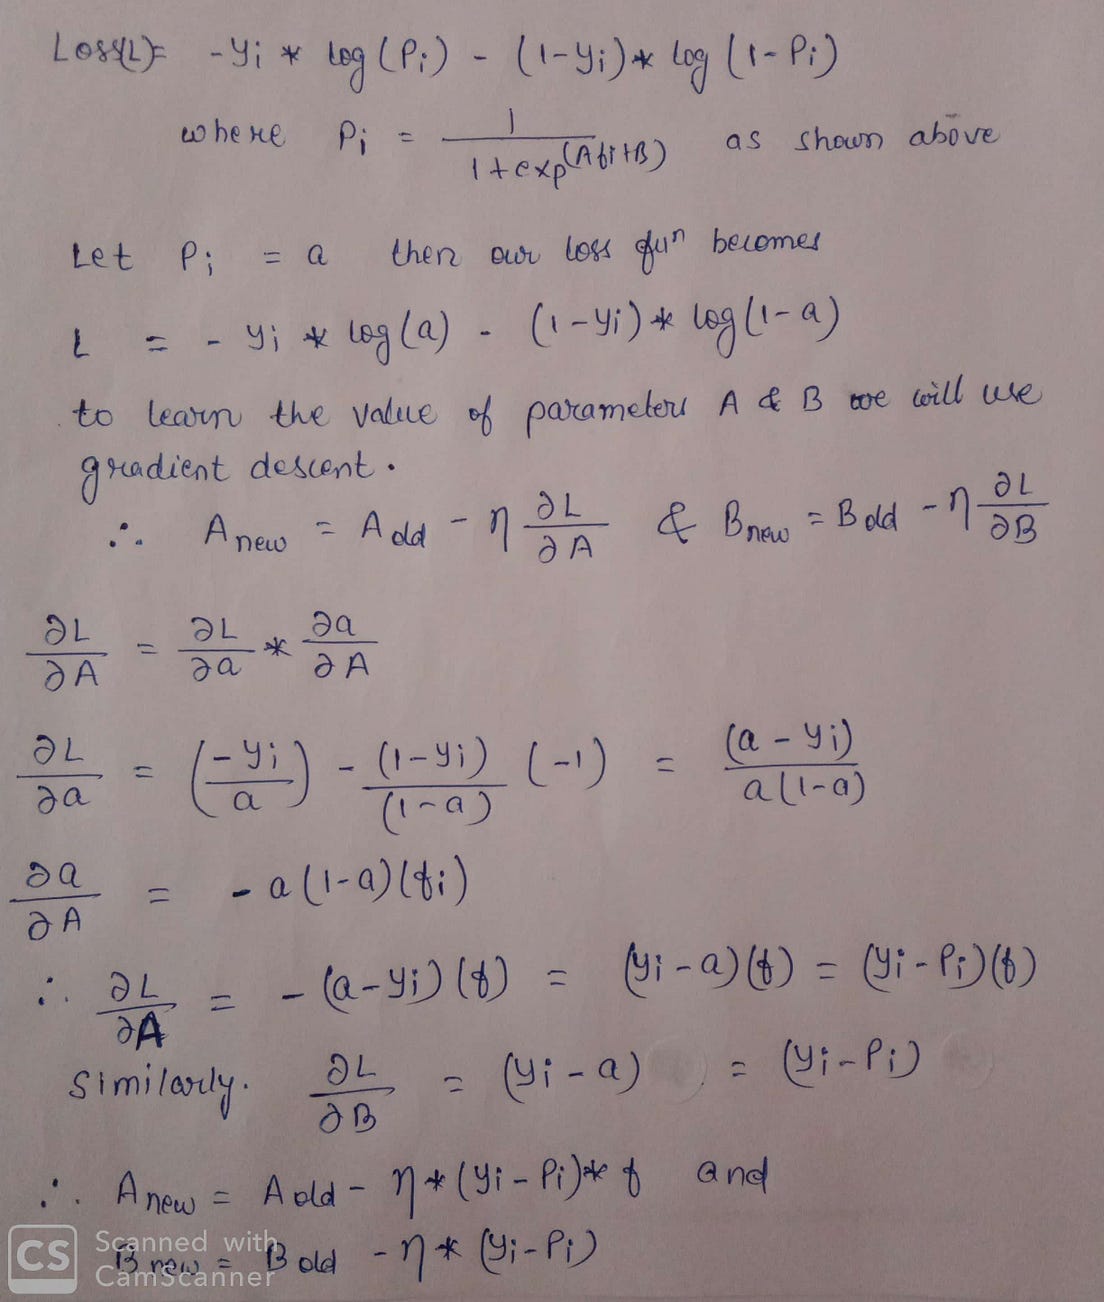 Loss(L)= -yi * log(Pi) - (1-yi)* log(1-Pi)
where Pi = 1/1+exp(Afi+B) as shown above
Let Pi = a then our loss fun becomes
L = - yi * log(a) - (1-yi)* log(1-a)
to learn the value of parameters A & B we will use
gradient descent.
∴ Anew = Aold - η ∂L/∂A & Bnew = Bold - η ∂L/∂B
∂L/∂A = ∂L/∂a * ∂a/∂A
∂L/∂a = (-yi/a) - (1-yi)/(1-a) (-1) = (a-yi)/a(1-a)
∂a/∂A = - a(1-a)(fi)
∴ ∂L/∂A = - (a-yi)(f) = (yi-a)(f) = (yi-Pi)(f)
Similarly. ∂L/∂B = (yi-a) = (yi-Pi)
∴ Anew = Aold - η*(yi-Pi)* f and
Bnew = Bold - η* (yi-Pi)
CS Scanned with
CamScanner